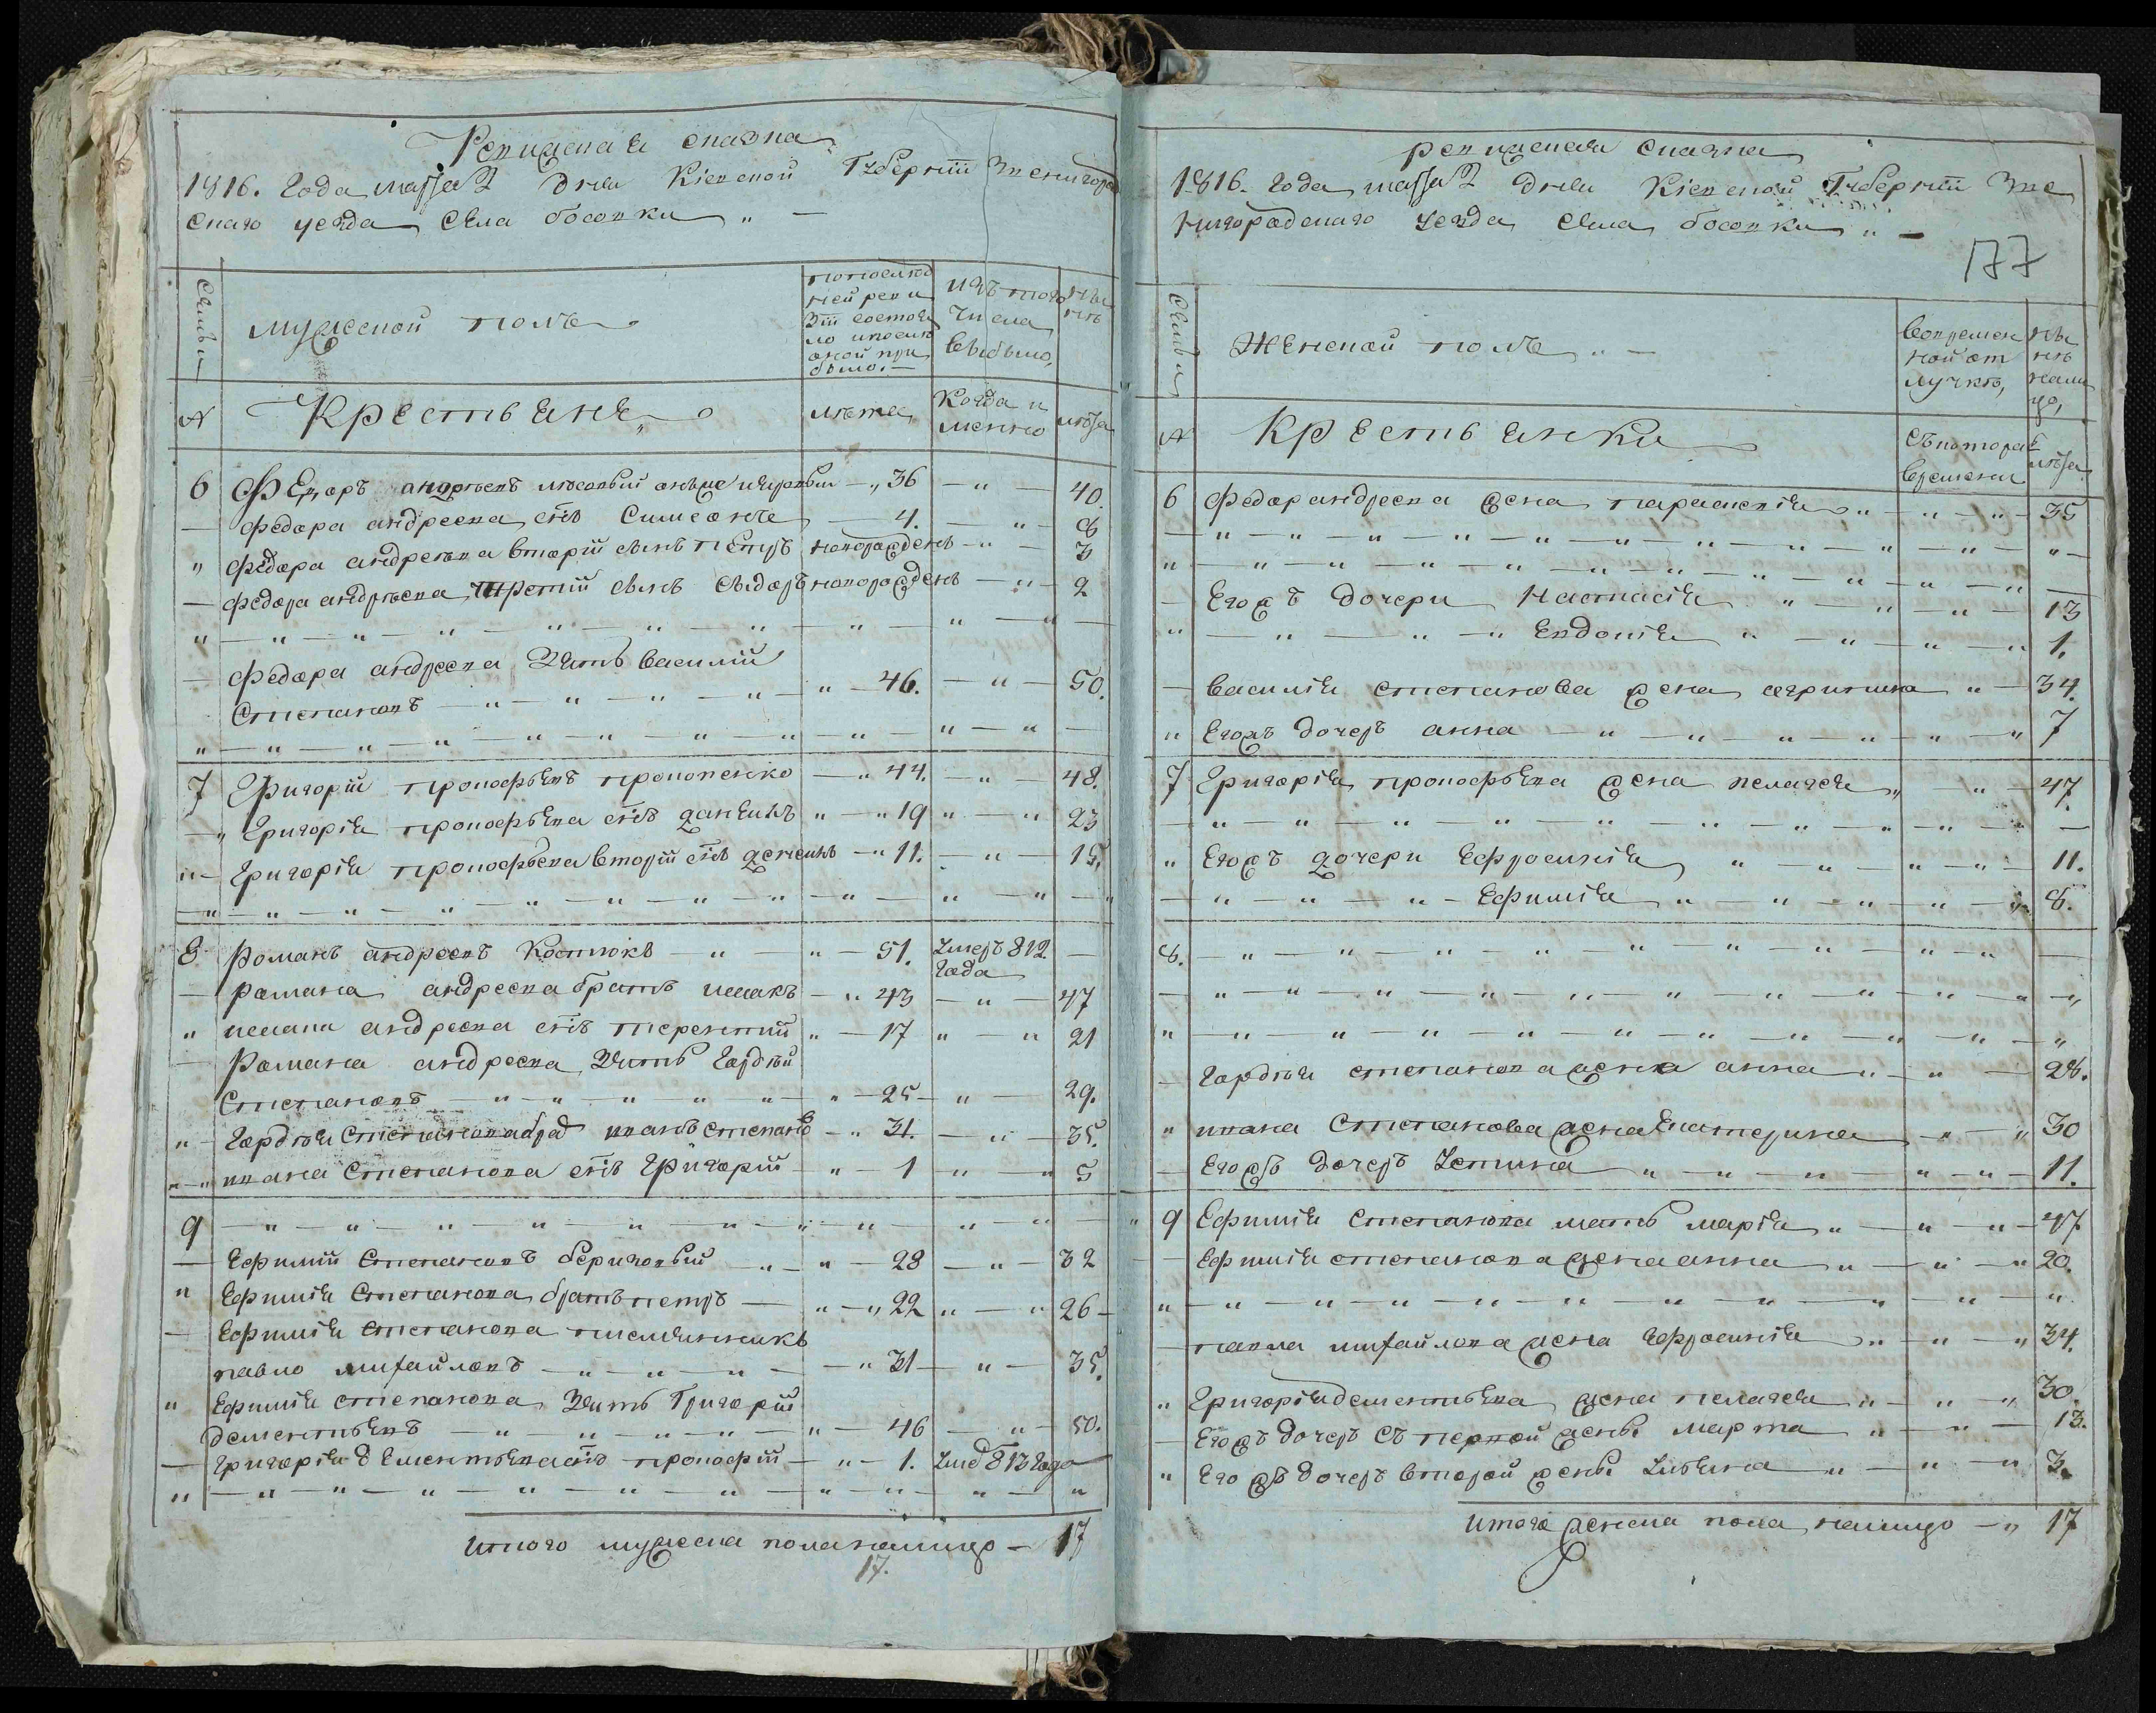 Ревижская сказка
1816. года маија 2 дня Кіевской Губерніи Звенигород
скаго уезда села босовки
Семьи
мужеской полъ
попослед
ней реви
зіи состоя
ло ипосле
оной при
было.
изъ того
числа
выбыло,
ны
не
№
Крестьяне
лета
Когда и
менно
лета
6 Федоръ андреевъ 36 40.
Федора андреева снъ Симеонъ 4. 8
Федора андреева вторій сынъ петръ новорожденъ 3
Федора андреева третій сынъ Сыдоръ новорожденъ 2
Федора андреева Зять василій
Степановъ 46. 50.
7 Григорій прокофьевъ прокопенко 44. 48.
Григорія прокофьева снъ даніилъ 19 23
Григорія прокофьева вторій снъ 11. 15.
8 Романъ андреевъ Костюкъ 51. Умеръ 812
года
Романа андреева братъ исаакъ 43 47
исаака андреева снъ терентий 17 21
Романа андреева Зять Гордей
Степановъ 25 29.
Гордея Степанова брат иванъ степановъ 31. 35.
ивана Степанова снъ Григорій 1 5
9
Ефимій Степановъ береговый 28 32
Ефимія Степанова братъ петръ 22 26
Ефимія Степанова племянникъ
павло михайловъ 31 35.
Ефимія степанова Зять Григорій
дементьевъ 46 50.
Григорія дементьева снъ прокофій 1. Умер 813 года
Итого мужеска пола налицо 17
17.
ревижская сказка
1816. года маија 2 дня Кіевской Губерніи Зве
нигородскаго уезда села босовки
177
Семьи
Женской полъ
вовремен
ной от
лучке,
ны
не
нали
цо,
№
Крестьянки
Съкотораго
времени
лета
6 Федора андреева жена параскевія 35
Егожъ дочери Настасія 13
Евдокія 1.
василія степанова жена агрипина 34.
Егожъ дочеръ анна 7
7 Григорія прокофьева жена пелагея 47.
Егожъ дочери Ефросинія 11.
Ефимія 8.
8.
Гордея степанова жена анна 28.
ивана Степанова жена Екатерина 30
Егожъ дочеръ Устина 11.
9 Ефимія Степанова мать марія 47
Ефимія степанова жена анна 20.
павла михайлова жена Ефросинія 34.
Григорія дементьева жена пелагея 30.
Егожъ дочеръ съ первой жены марта 13.
Егожъ дочеръ второй жены Улияна 3.
Итого женска пола налицо 17